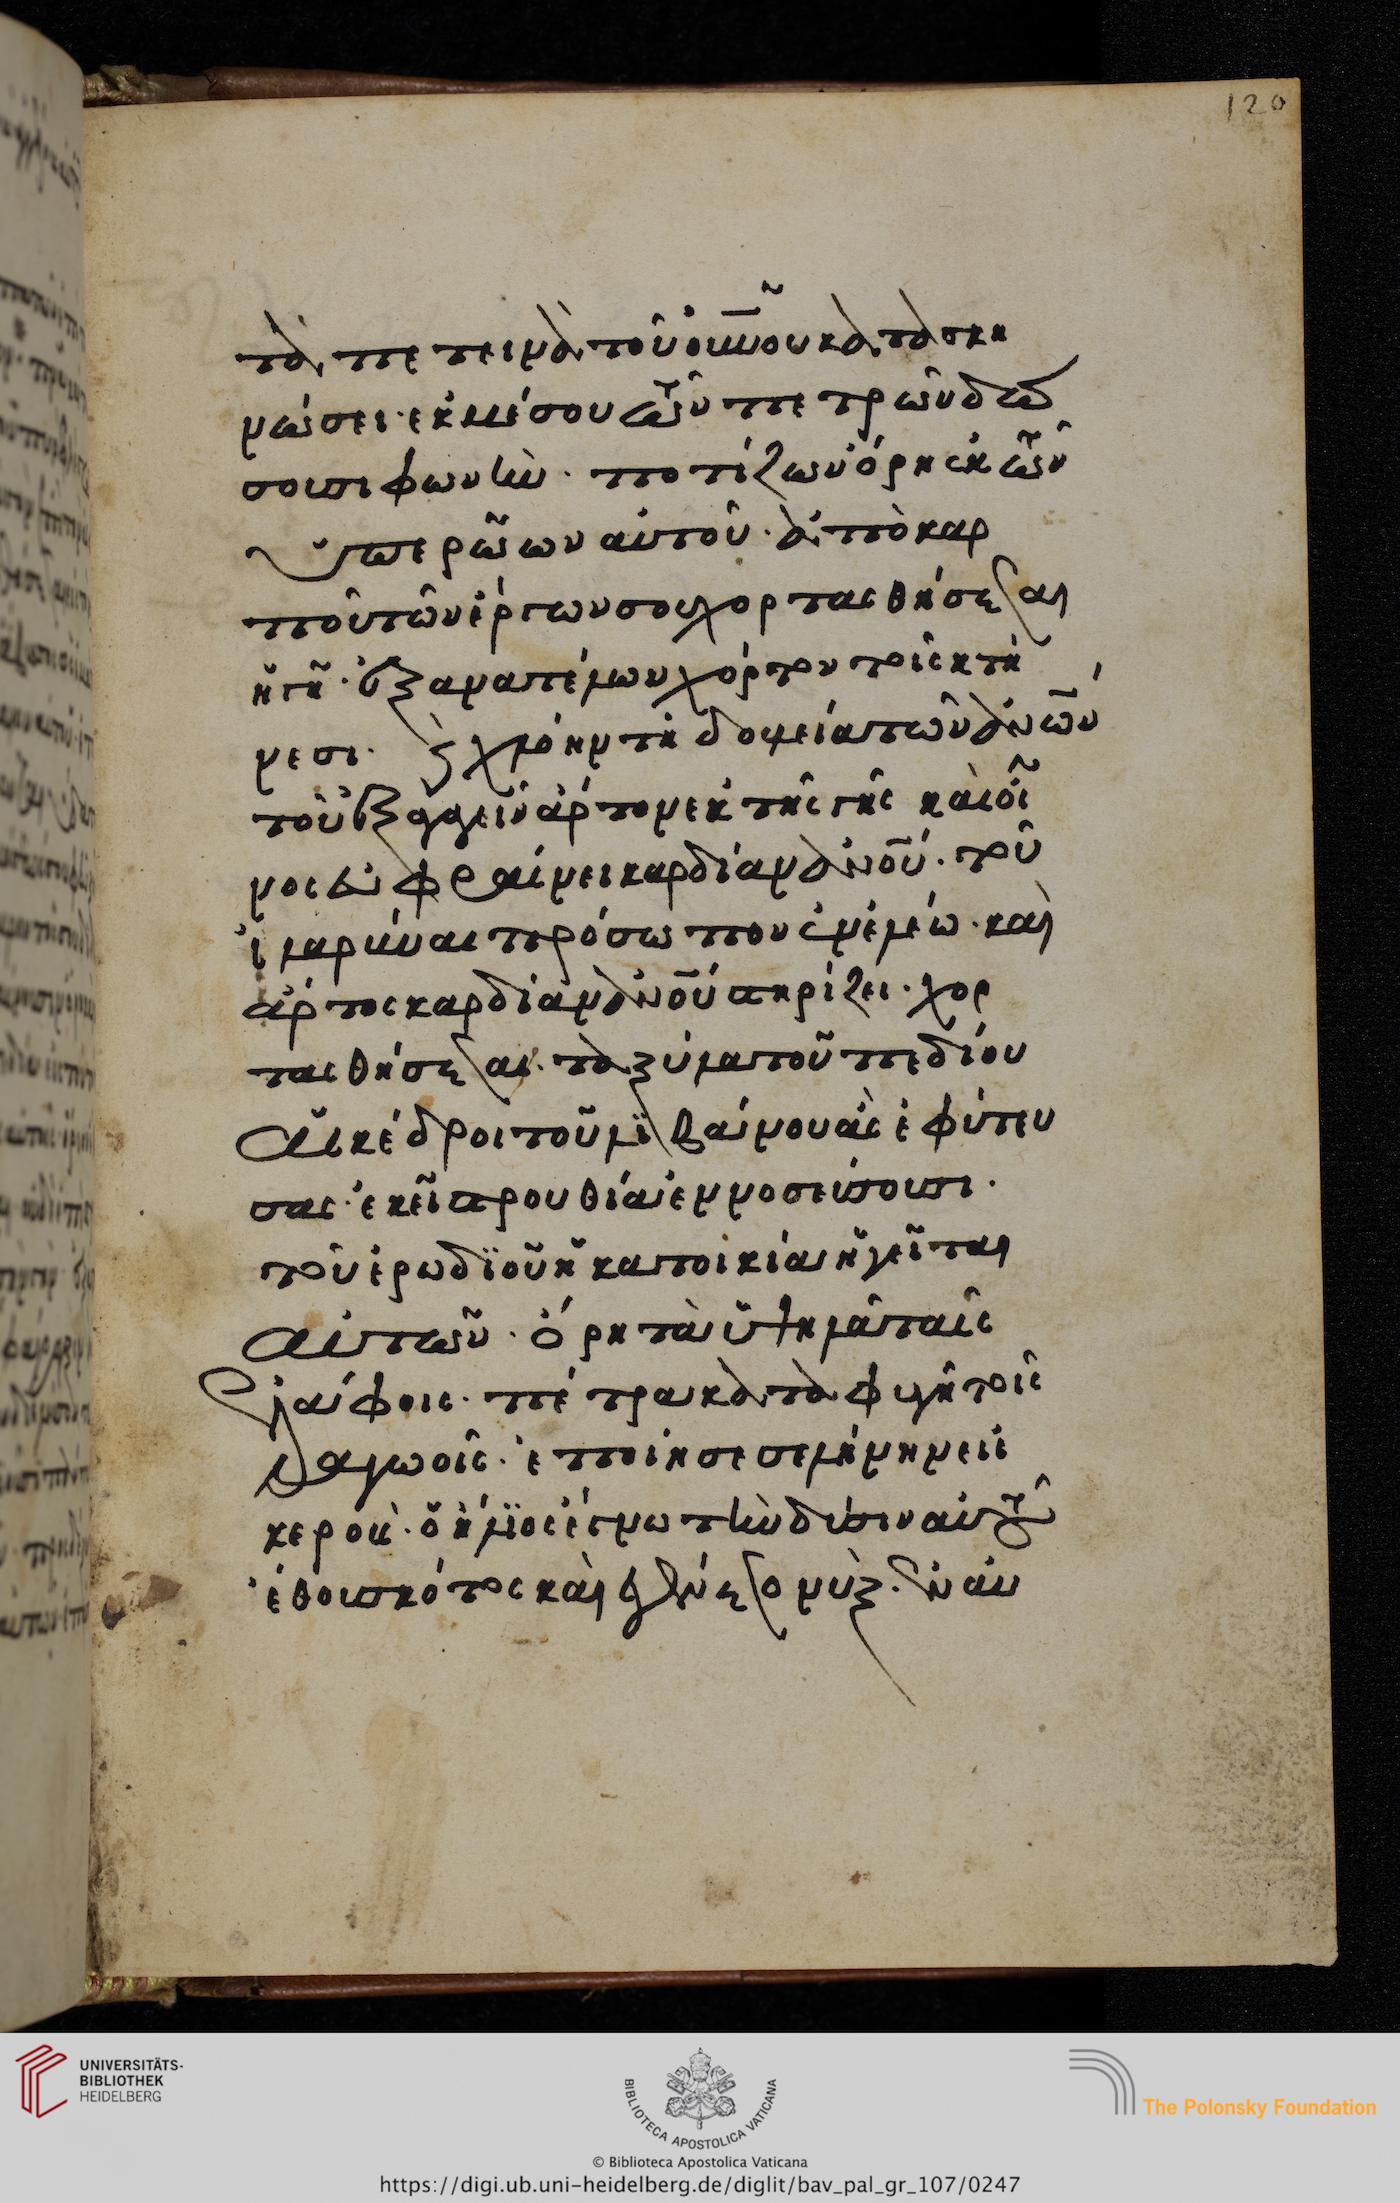 120
τὰ πετεινὰ τοῦ οὐνοῦ κα τασκη
νώσει· ἐκ μέσου τῶν πετρῶν δώ
σουσι φωνήν· ποτίζων ὄρη ἐκ τῶν
ὑπερώων αὐτοῦ· ἀπὸ καρ
ποῦ τῶν ἔργων σου χορτασθήσεται
ἡ γῆ· ὁ ἐξανατέλλων χόρτον τοῖς κτή
νεσι· καὶ χλόην τῆ δουλεία τῶν ἀνῶν
τοῦ ἐξαγαγεῖν ἄρτον ἐκ τῆς γῆς καὶ οἶ
νος εὐφραίνει καρδίαν ἀνοῦ· τοῦ
ἱλαρῦναι πρόσωπον ἐν ἐλέω· καὶ
ἄρτος καρδίαν ἀνοῦ στηρίζει· χορ
τασθήσεται τὰ ξύλα τοῦ πεδίου
αἱ κέδροι τοῦ λιβάνου ἃς ἐφύτευ
σας· ἐκεῖ στρουθία ἐννοσεύσουσι·
τοῦ ἐρωδιοῦ ἡ κατοικία ἡγεῖται
αὐτῶν· ὄρη τὰ ὑψηλὰ ταῖς
ἐλάφοις· πέτρα καταφυγὴ τοῖς
λαγωοῖς· ἐποίησε σελήνην εἰς
καιρούς· ὁ ἥλιος ἔγνω τὴν δύσιν αὐτοῦ
ἔθου σκότος καὶ ἐγένετο νύξ· ἐν αὐ
UNIVERSITÄTS-
BIBLIOTHEK
HEIDELBERG
BIBLIOTECA APOSTOLICA VATICANA
The Polonsky Foundation
© Biblioteca Apostolica Vaticana
https://digi.ub.uni-heidelberg.de/diglit/bav_pal_gr_107/0247